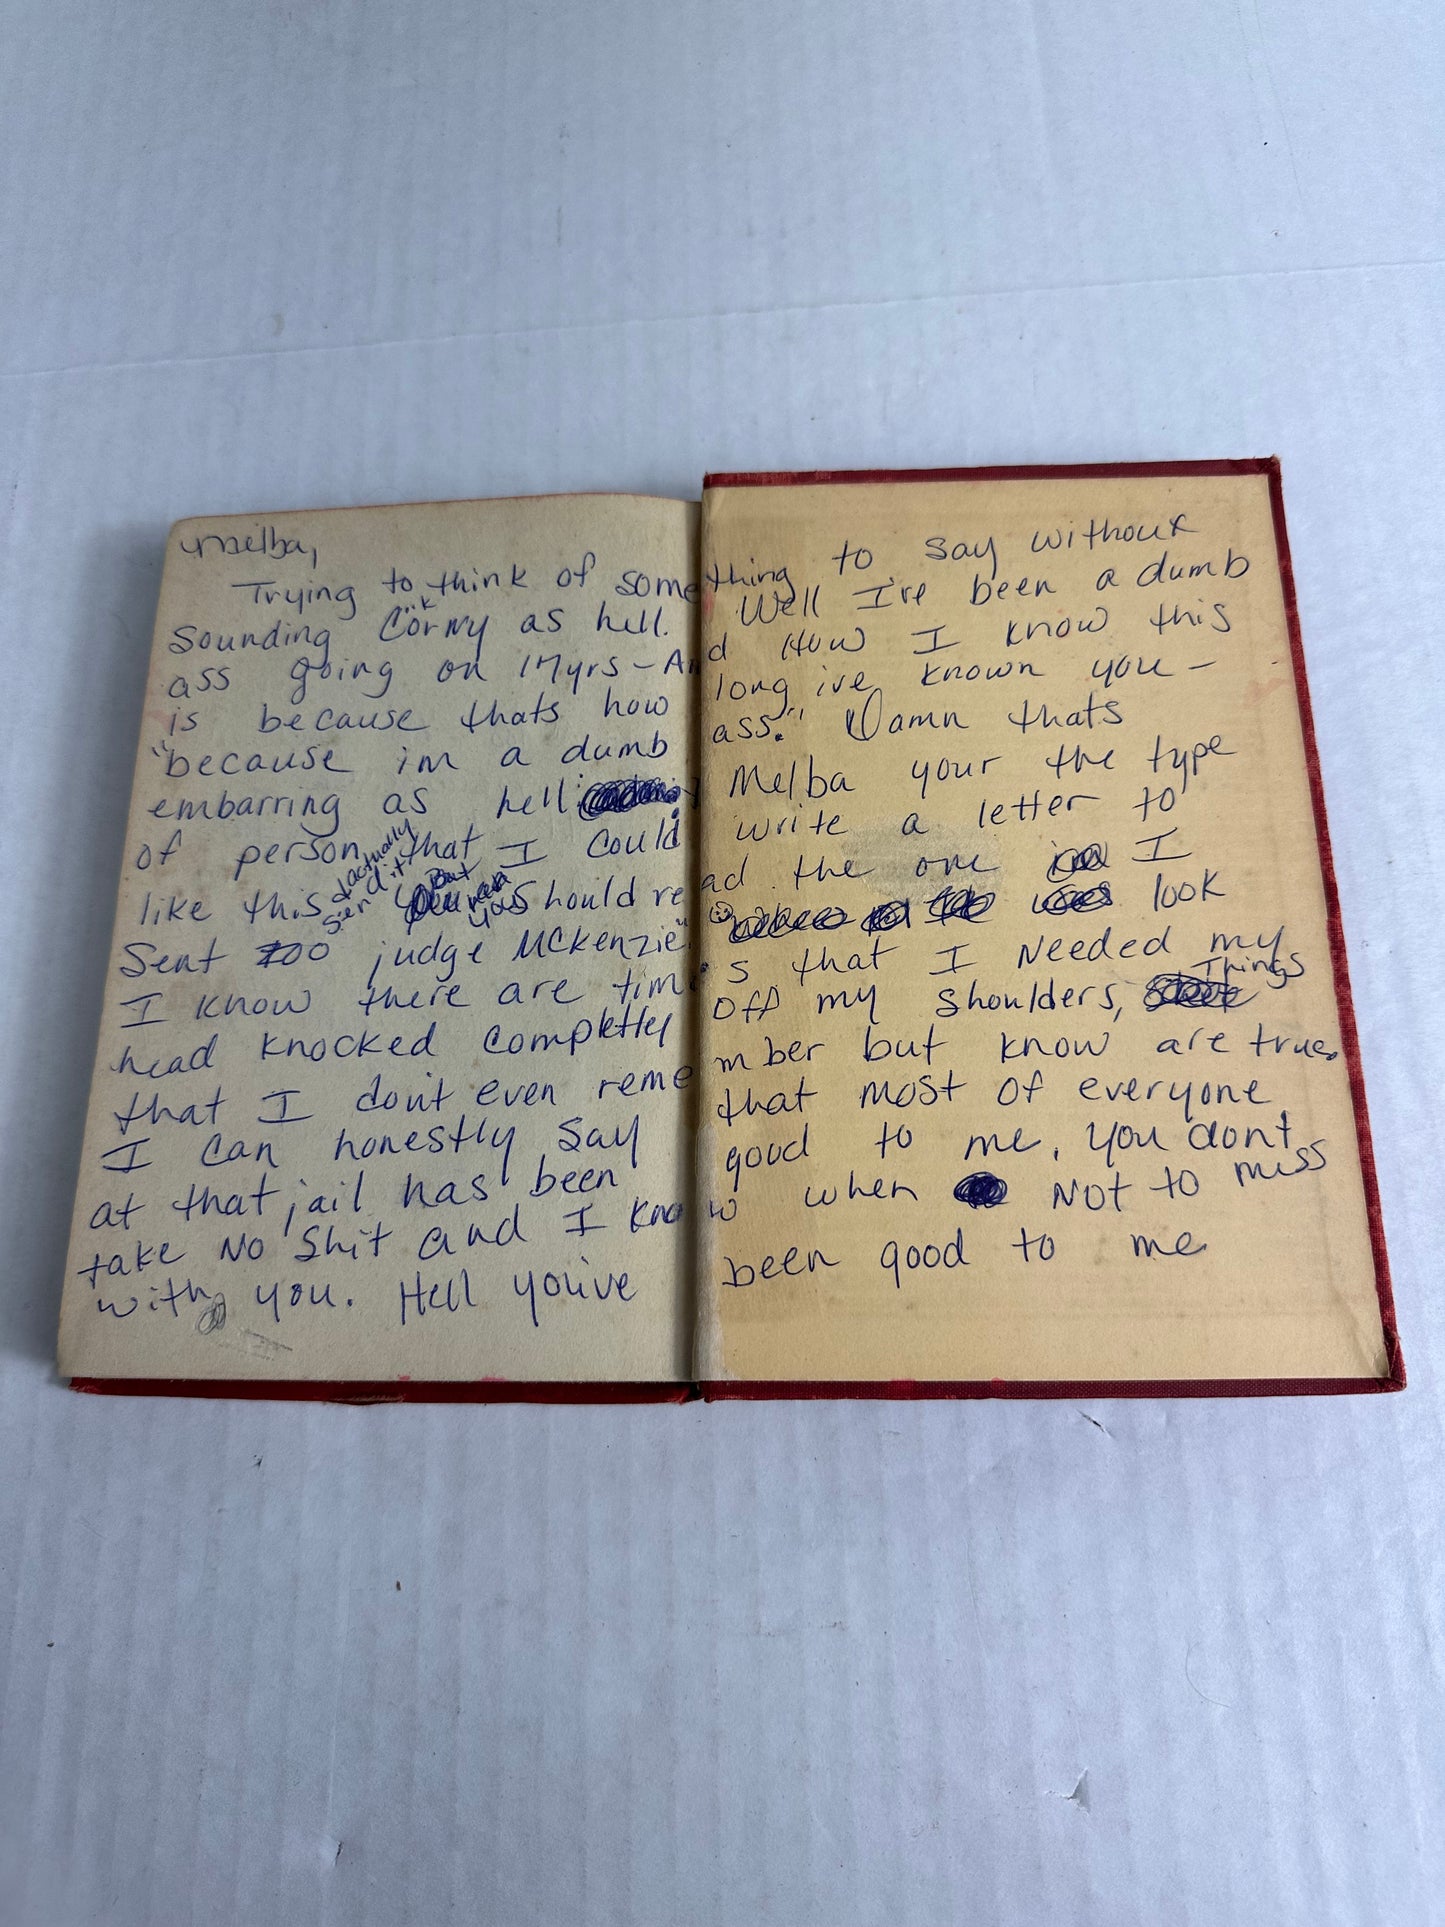 Melba,
Trying to think of something to say without
sounding Corny as hell. Well I've been a dumb
ass going on 17yrs - And How I know this
is because thats how long ive known you -
"because im a dumb ass." Damn thats
embarring as hell! Melba your the type
of person that I could write a letter to
like this & actually send it. But you should read the one I
Sent to judge McKenzie" look
I know there are times that I Needed my
head knocked completly off my shoulders, Things
that I don't even remember but know are true.
I can honestly say that most of everyone
at that jail has been good to me. You dont
take No Shit and I know when Not to miss
with you. Hell you've been good to me